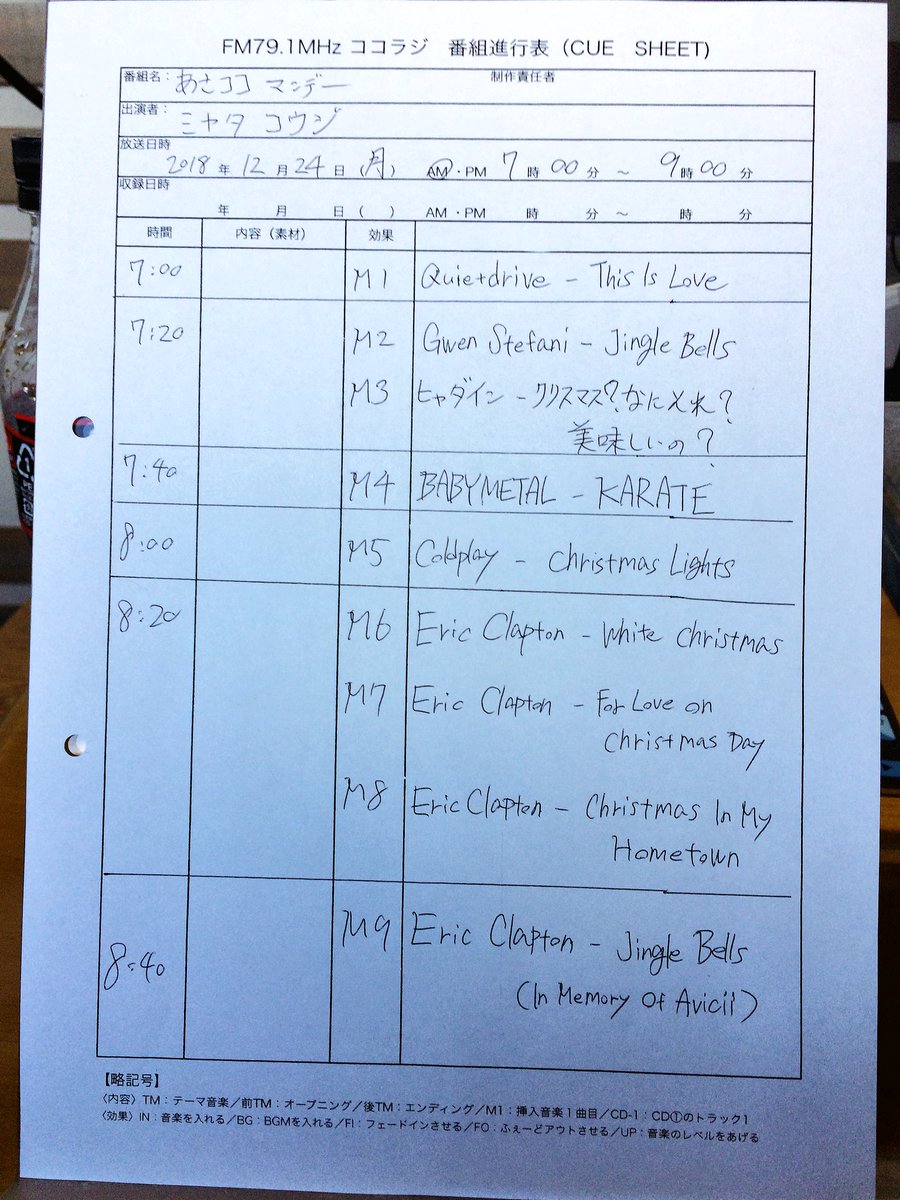 FM79.1MHz ココラジ 番組進行表（CUE SHEET)
番組名： あさココ マンデー 制作責任者
出演者： ミヤタ コウジ
放送日時
2018 年 12 月 24 日 (月) AM・PM 7 時 00 分 ～ 9 時 00 分
収録日時
年 月 日 ( ) AM・PM 時 分 ～ 時 分
時間 内容（素材） 効果
7:00 M1 Quietdrive - This Is Love
7:20 M2 Gwen Stefani - Jingle Bells
M3 ヒャダイン - クリスマス?なにそれ?
美味しいの?
7:40 M4 BABYMETAL - KARATE
8:00 M5 Coldplay - Christmas Lights
8:20 M6 Eric Clapton - White Christmas
M7 Eric Clapton - For Love on
Christmas Day
M8 Eric Clapton - Christmas In My
Hometown
8:40 M9 Eric Clapton - Jingle Bells
(In Memory Of Avicii)
【略記号】
〈内容〉TM：テーマ音楽／前TM：オープニング／後TM：エンディング／M1：挿入音楽１曲目／CD-1：CD①のトラック1
〈効果〉IN：音楽を入れる／BG：BGMを入れる／FI：フェードインさせる／FO：ふぇーどアウトさせる／UP：音楽のレベルをあげる